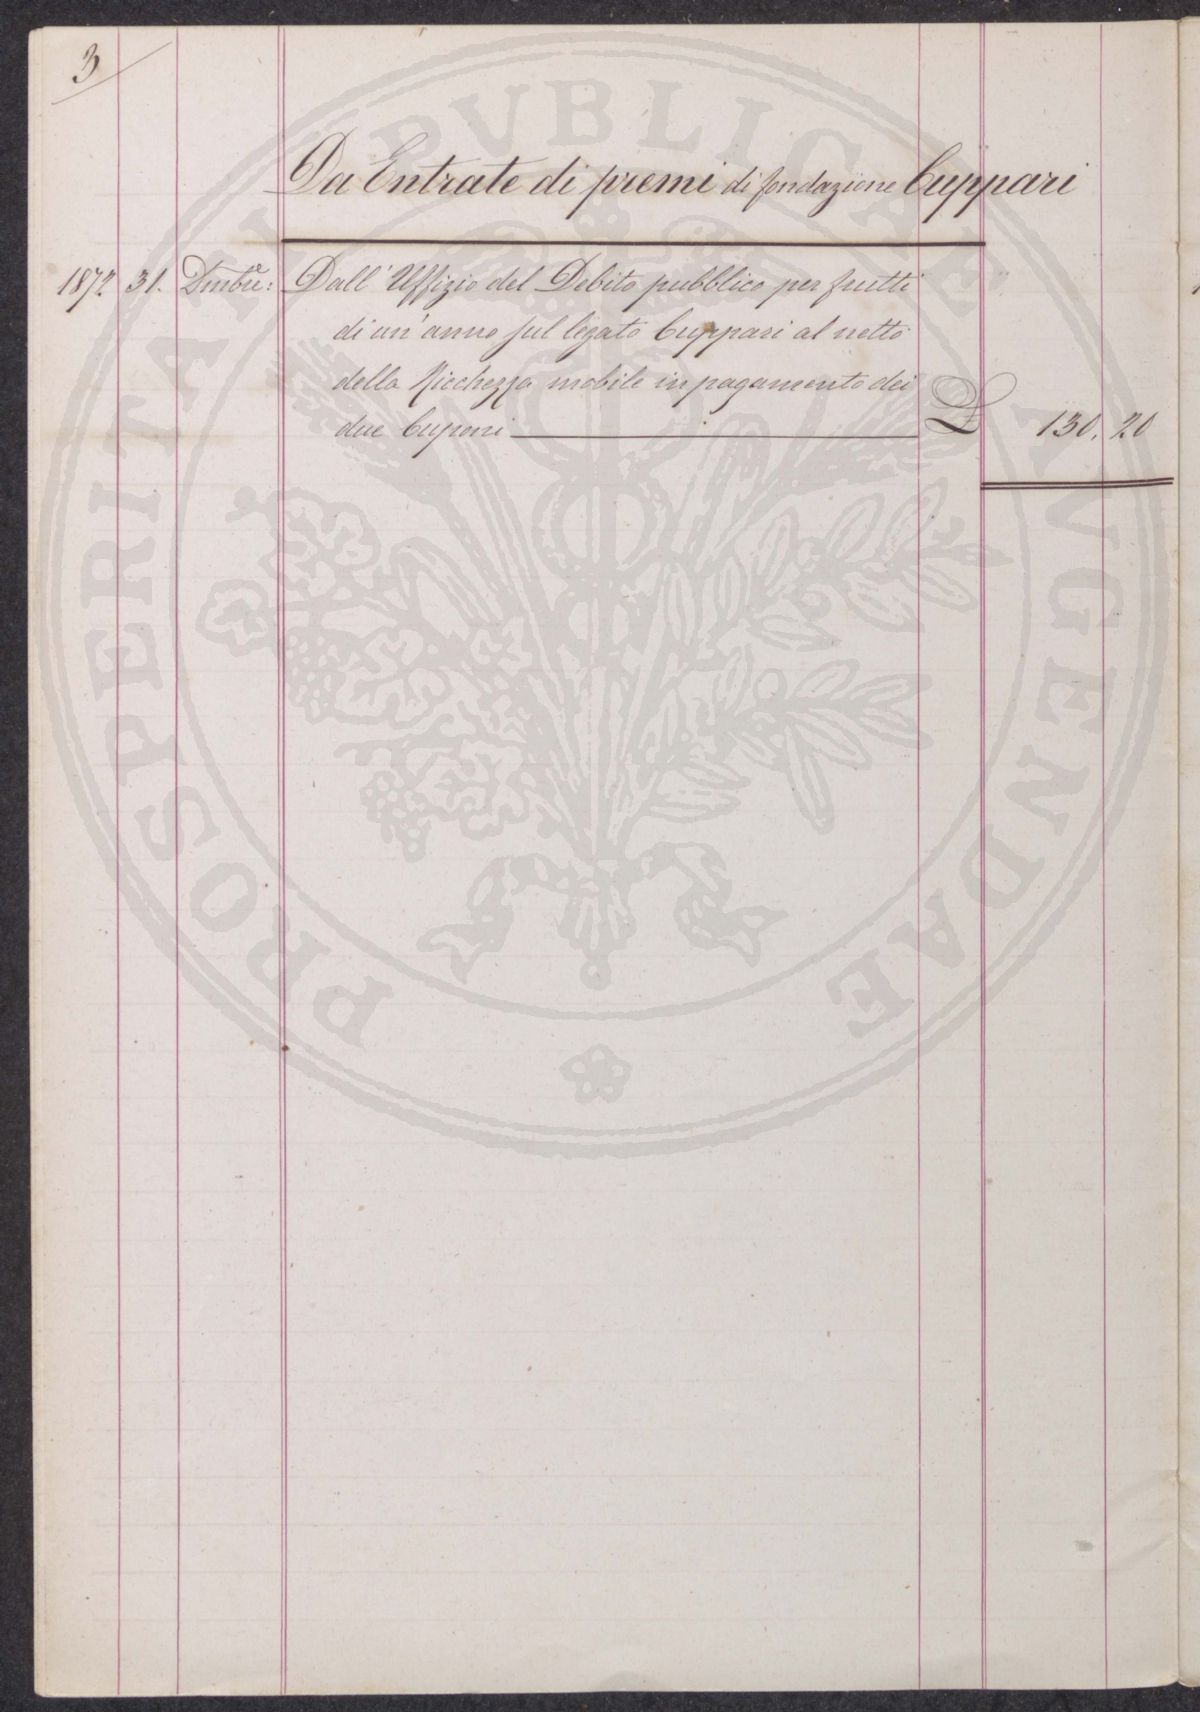 3
Da Entrate di premi di fondazione Cuppari
1872 31. Dmbre: Dall' Uffizio del Debito pubblico per frutti
di un' anno sul legato Cuppari al netto
della Ricchezza mobile in pagamento dei
due Cuponi £ 130. 20
PROSPERITATI PVBLICAE AVGENDAE